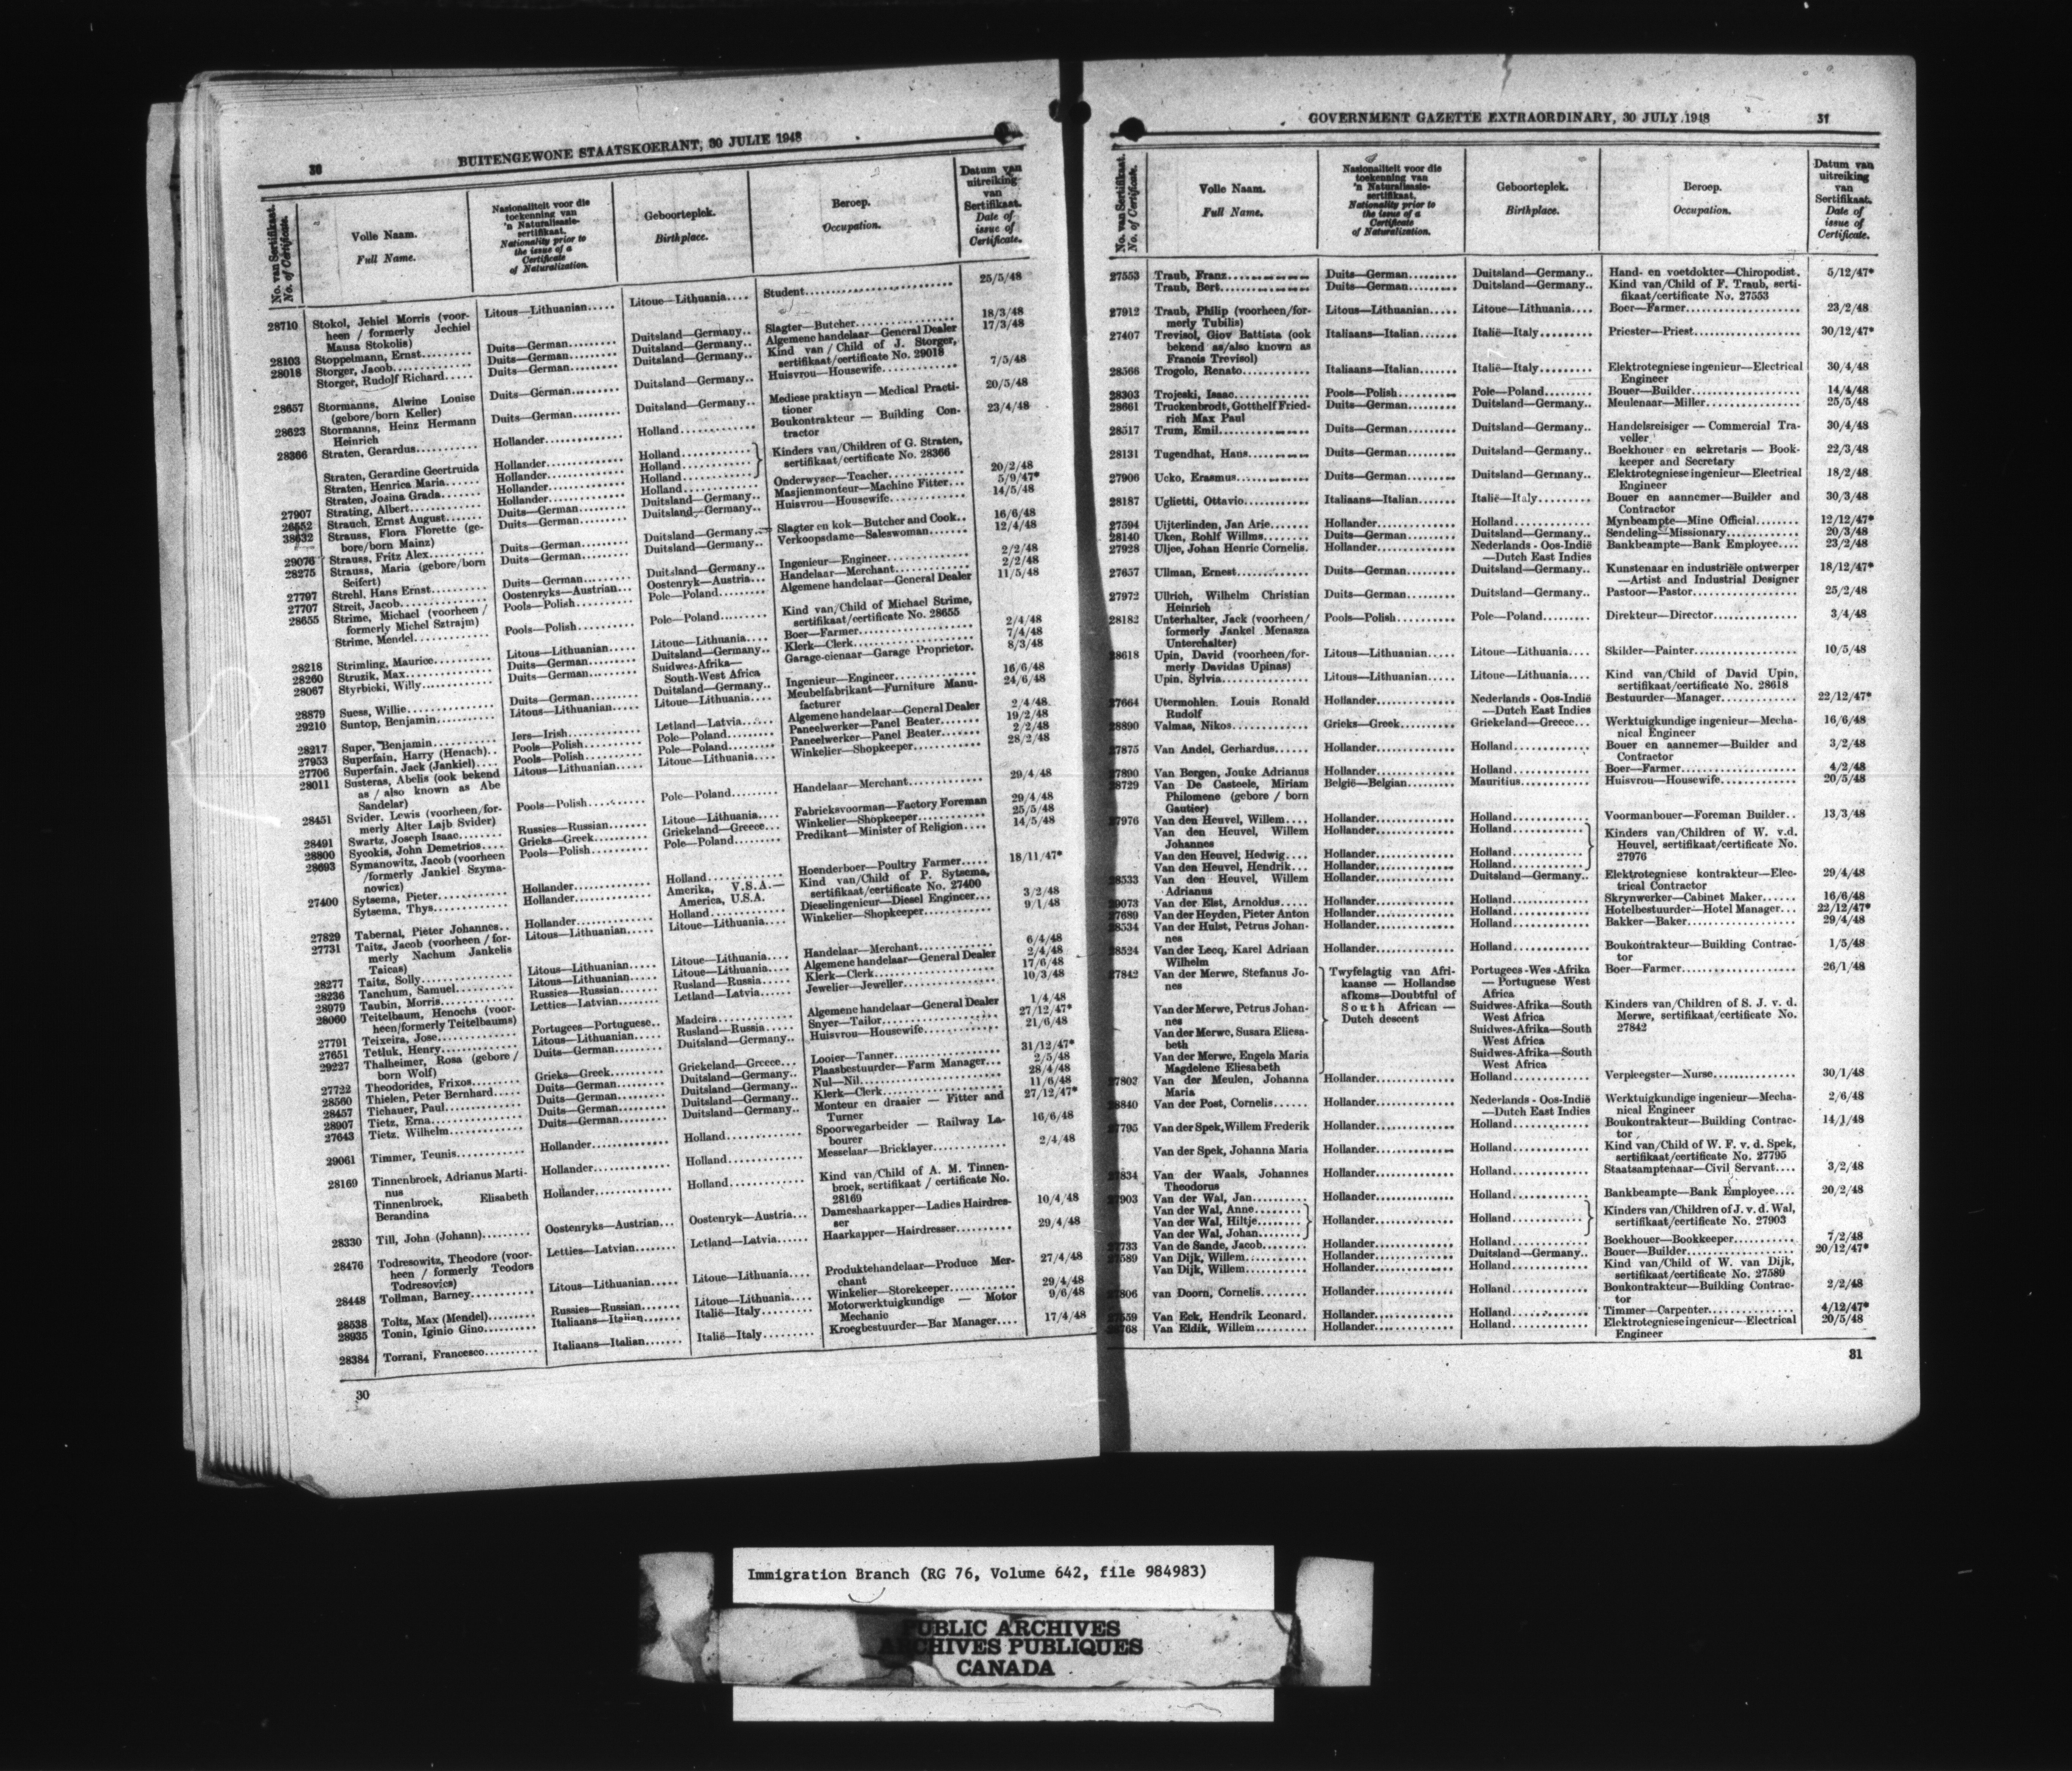 30
BUITENGEWONE STAATSKOERANT, 30 JULIE 1948
No. van Sertifikaat.
No. of Certificate.
Volle Naam.
Full Name.
Nasionaliteit voor die
toekenning van
'n Naturalisasie-
sertifikaat.
Nationality prior to
the issue of a
Certificate
of Naturalization.
Geboorteplek.
Birthplace.
Beroep.
Occupation.
Datum van
uitreiking
van
Sertifikaat.
Date of
issue of
Certificate.
28710 Stokol, Jehiel Morris (voor- Litous—Lithuanian..... Litoue—Lithuania.... Student 25/5/48
heen / formerly Jechiel
Mausa Stokolis)
28103 Stoppelmann, Ernst Duits—German Duitsland—Germany.. Slagter—Butcher 18/3/48
28018 Storger, Jacob Duits—German Duitsland—Germany.. Algemene handelaar—General Dealer 17/3/48
Storger, Rudolf Richard Duits—German Duitsland—Germany.. Kind van / Child of J. Storger,
sertifikaat/certificate No. 29018
28657 Stormanns, Alwine Louise Duits—German Duitsland—Germany.. Huisvrou—Housewife 7/5/48
(gebore/born Keller)
28623 Stormanns, Heinz Hermann Duits—German Duitsland—Germany.. Mediese praktisyn — Medical Practi- 20/5/48
Heinrich tioner
28366 Straten, Gerardus Hollander Holland Boukontrakteur — Building Con- 23/4/48
tractor
Straten, Gerardine Geertruida Hollander Holland Kinders van/Children of G. Straten,
Straten, Henrica Maria Hollander Holland sertifikaat/certificate No. 28366
Straten, Josina Grada Hollander Holland
27907 Strating, Albert Hollander Holland Onderwyser—Teacher 20/2/48
26552 Strauch, Ernst August Duits—German Duitsland—Germany.. Masjienmonteur—Machine Fitter 5/9/47*
38632 Strauss, Flora Florette (ge- Duits—German Duitsland—Germany.. Huisvrou—Housewife 14/5/48
bore/born Mainz)
29076 Strauss, Fritz Alex Duits—German Duitsland—Germany.. Slagter en kok—Butcher and Cook.. 16/6/48
28275 Strauss, Maria (gebore/born Duits—German Duitsland—Germany.. Verkoopsdame—Saleswoman 12/4/48
Seifert)
27797 Strehl, Hans Ernst Duits—German Duitsland—Germany.. Ingenieur—Engineer 2/2/48
27707 Streit, Jacob Oostenryks—Austrian Oostenryk—Austria Handelaar—Merchant 2/2/48
28655 Strime, Michael (voorheen / Pools—Polish Pole—Poland Algemene handelaar—General Dealer 11/5/48
formerly Michel Sztrajm)
Strime, Mendel Pools—Polish Pole—Poland Kind van/Child of Michael Strime,
sertifikaat/certificate No. 28655
28218 Strimling, Maurice Litous—Lithuanian Litoue—Lithuania Boer—Farmer 2/4/48
28260 Struzik, Max Duits—German Duitsland—Germany.. Klerk—Clerk 7/4/48
28067 Styrbicki, Willy Duits—German Suidwes-Afrika— Garage-eienaar—Garage Proprietor. 8/3/48
South-West Africa
28879 Suess, Willie Duits—German Duitsland—Germany.. Ingenieur—Engineer 16/6/48
29210 Suntop, Benjamin Litous—Lithuanian Litoue—Lithuania Meubelfabrikant—Furniture Manu- 24/6/48
facturer
28217 Super, Benjamin Iers—Irish Letland—Latvia Algemene handelaar—General Dealer 2/4/48
27953 Superfain, Harry (Henach) Pools—Polish Pole—Poland Paneelwerker—Panel Beater 19/2/48
27706 Superfain, Jack (Jankiel) Pools—Polish Pole—Poland Paneelwerker—Panel Beater 2/2/48
28011 Susteras, Abelis (ook bekend Litous—Lithuanian Litoue—Lithuania Winkelier—Shopkeeper 28/2/48
as / also known as Abe
Sandelar)
28451 Svider, Lewis (voorheen/for- Pools—Polish Pole—Poland Handelaar—Merchant 29/4/48
merly Alter Lajb Svider)
28491 Swartz, Joseph Isaac Russies—Russian Litoue—Lithuania Fabrieksvoorman—Factory Foreman 29/4/48
28800 Sycokis, John Demetrios Grieks—Greek Griekeland—Greece Winkelier—Shopkeeper 25/5/48
28693 Symanowitz, Jacob (voorheen Pools—Polish Pole—Poland Predikant—Minister of Religion 14/5/48
/formerly Jankiel Szyma-
nowicz)
27400 Sytsema, Pieter Hollander Holland Hoenderboer—Poultry Farmer 18/11/47*
Sytsema, Thys Hollander Amerika, V.S.A.— Kind van/Child of P. Sytsema,
America, U.S.A. sertifikaat/certificate No. 27400
27829 Tabernal, Pieter Johannes Hollander Holland Dieselingenieur—Diesel Engineer 3/2/48
27731 Taitz, Jacob (voorheen / for- Litous—Lithuanian Litoue—Lithuania Winkelier—Shopkeeper 9/1/48
merly Nachum Jankelis
Taicas)
28277 Taitz, Solly Litous—Lithuanian Litoue—Lithuania Handelaar—Merchant 6/4/48
28236 Tanchum, Samuel Litous—Lithuanian Litoue—Lithuania Algemene handelaar—General Dealer 2/4/48
28979 Taubin, Morris Russies—Russian Rusland—Russia Klerk—Clerk 17/6/48
28060 Teitelbaum, Henochs (voor- Letties—Latvian Letland—Latvia Jewelier—Jeweller 10/3/48
heen/formerly Teitelbaums)
27791 Teixeira, Jose Portugees—Portuguese Madeira Algemene handelaar—General Dealer 1/4/48
27651 Tetluk, Henry Litous—Lithuanian Rusland—Russia Snyer—Tailor 27/12/47*
29227 Thalheimer, Rosa (gebore / Duits—German Duitsland—Germany.. Huisvrou—Housewife 21/6/48
born Wolf)
27722 Theodorides, Frixos Grieks—Greek Griekeland—Greece Looier—Tanner 31/12/47*
28560 Thielen, Peter Bernhard Duits—German Duitsland—Germany.. Plaasbestuurder—Farm Manager 2/5/48
28457 Tichauer, Paul Duits—German Duitsland—Germany.. Nul—Nil 28/4/48
28907 Tietz, Erna Duits—German Duitsland—Germany.. Klerk—Clerk 11/6/48
27643 Tietz, Wilhelm Duits—German Duitsland—Germany.. Monteur en draaier — Fitter and 27/12/47*
Turner
29061 Timmer, Teunis Hollander Holland Spoorwegarbeider — Railway La- 16/6/48
bourer
28169 Tinnenbroek, Adrianus Marti- Hollander Holland Messelaar—Bricklayer 2/4/48
nus
Tinnenbroek, Elisabeth Hollander Holland Kind van/Child of A. M. Tinnen-
Berandina broek, sertifikaat / certificate No.
28169
28330 Till, John (Johann) Oostenryks—Austrian Oostenryk—Austria Dameshaarkapper—Ladies Hairdres- 10/4/48
ser
28476 Todresowitz, Theodore (voor- Letties—Latvian Letland—Latvia Haarkapper—Hairdresser 29/4/48
heen / formerly Teodors
Todresovics)
28448 Tollman, Barney Litous—Lithuanian Litoue—Lithuania Produktehandelaar—Produce Mer- 27/4/48
chant
28538 Toltz, Max (Mendel) Russies—Russian Litoue—Lithuania Winkelier—Storekeeper 29/4/48
28935 Tonin, Iginio Gino Italiaans—Italian Italië—Italy Motorwerktuigkundige — Motor 9/6/48
Mechanic
28384 Torrani, Francesco Italiaans—Italian Italië—Italy Kroegbestuurder—Bar Manager 17/4/48
30
GOVERNMENT GAZETTE EXTRAORDINARY, 30 JULY 1948
31
No. van Sertifikaat.
No. of Certificate.
Volle Naam.
Full Name.
Nasionaliteit voor die
toekenning van
'n Naturalisasie-
sertifikaat.
Nationality prior to
the issue of a
Certificate
of Naturalization.
Geboorteplek.
Birthplace.
Beroep.
Occupation.
Datum van
uitreiking
van
Sertifikaat.
Date of
issue of
Certificate.
27553 Traub, Franz Duits—German Duitsland—Germany.. Hand- en voetdokter—Chiropodist. 5/12/47*
Traub, Bert Duits—German Duitsland—Germany.. Kind van/Child of F. Traub, serti-
fikaat/certificate No. 27553
27912 Traub, Philip (voorheen/for- Litous—Lithuanian Litoue—Lithuania Boer—Farmer 23/2/48
merly Tubilis)
27407 Trevisol, Giov Battista (ook Italiaans—Italian Italië—Italy Priester—Priest 30/12/47*
bekend as/also known as
Francis Trevisol)
28566 Trogolo, Renato Italiaans—Italian Italië—Italy Elektrotegniese ingenieur—Electrical 30/4/48
Engineer
28303 Trojeski, Isaac Pools—Polish Pole—Poland Bouer—Builder 14/4/48
28661 Truckenbrodt, Gotthelf Fried- Duits—German Duitsland—Germany.. Meulenaar—Miller 25/5/48
rich Max Paul
28517 Trum, Emil Duits—German Duitsland—Germany.. Handelsreisiger — Commercial Tra- 30/4/48
veller
28131 Tugendhat, Hans Duits—German Duitsland—Germany.. Boekhouer en sekretaris — Book- 22/3/48
keeper and Secretary
27906 Ucko, Erasmus Duits—German Duitsland—Germany.. Elektrotegniese ingenieur—Electrical 18/2/48
Engineer
28187 Uglietti, Ottavio Italiaans—Italian Italië—Italy Bouer en aannemer—Builder and 30/3/48
Contractor
27594 Uijterlinden, Jan Arie Hollander Holland Mynbeampte—Mine Official 12/12/47*
28140 Uken, Rohlf Willms Duits—German Duitsland—Germany.. Sendeling—Missionary 20/3/48
27928 Uljee, Johan Henric Cornelis. Hollander Nederlands - Oos-Indië Bankbeampte—Bank Employee 23/2/48
—Dutch East Indies
27657 Ullman, Ernest Duits—German Duitsland—Germany.. Kunstenaar en industriële ontwerper 18/12/47*
—Artist and Industrial Designer
27972 Ullrich, Wilhelm Christian Duits—German Duitsland—Germany.. Pastoor—Pastor 25/2/48
Heinrich
28182 Unterhalter, Jack (voorheen/ Pools—Polish Pole—Poland Direkteur—Director 3/4/48
formerly Jankel Menasza
Unterchalter)
28618 Upin, David (voorheen/for- Litous—Lithuanian Litoue—Lithuania Skilder—Painter 10/5/48
merly Davidas Upinas)
Upin, Sylvia Litous—Lithuanian Litoue—Lithuania Kind van/Child of David Upin,
sertifikaat/certificate No. 28618
27664 Utermohlen, Louis Ronald Hollander Nederlands - Oos-Indië Bestuurder—Manager 22/12/47*
Rudolf —Dutch East Indies
28890 Valmas, Nikos Grieks—Greek Griekeland—Greece Werktuigkundige ingenieur—Mecha- 16/6/48
nical Engineer
27875 Van Andel, Gerhardus Hollander Holland Bouer en aannemer—Builder and 3/2/48
Contractor
27890 Van Bergen, Jouke Adrianus Hollander Holland Boer—Farmer 4/2/48
28729 Van De Casteele, Miriam België—Belgian Mauritius Huisvrou—Housewife 20/5/48
Philomene (gebore / born
Gautier)
27976 Van den Heuvel, Willem Hollander Holland Voormanbouer—Foreman Builder 13/3/48
Van den Heuvel, Willem Hollander Holland Kinders van/Children of W. v.d.
Johannes Heuvel, sertifikaat/certificate No.
Van den Heuvel, Hedwig Hollander Holland 27976
Van den Heuvel, Hendrik Hollander Holland
28533 Van den Heuvel, Willem Hollander Duitsland—Germany.. Elektrotegniese kontrakteur—Elec- 29/4/48
Adrianus trical Contractor
29073 Van der Elst, Arnoldus Hollander Holland Skrynwerker—Cabinet Maker 16/6/48
27689 Van der Heyden, Pieter Anton Hollander Holland Hotelbestuurder—Hotel Manager 22/12/47*
28534 Van der Hulst, Petrus Johan- Hollander Holland Bakker—Baker 29/4/48
nes
28524 Van der Lecq, Karel Adriaan Hollander Holland Boukontrakteur—Building Contrac- 1/5/48
Wilhelm tor
27842 Van der Merwe, Stefanus Jo- Twyfelagtig van Afri- Portugees-Wes-Afrika Boer—Farmer 26/1/48
nes kaanse — Hollandse — Portuguese West
afkoms—Doubtful of Africa
Van der Merwe, Petrus Johan- South African — Suidwes-Afrika—South Kinders van/Children of S. J. v. d.
nes Dutch descent West Africa Merwe, sertifikaat/certificate No.
Van der Merwe, Susara Eliesa- Suidwes-Afrika—South 27842
beth West Africa
Van der Merwe, Engela Maria Suidwes-Afrika—South
Magdelene Eliesabeth West Africa
27802 Van der Meulen, Johanna Hollander Holland Verpleegster—Nurse 30/1/48
Maria
28840 Van der Post, Cornelis Hollander Nederlands - Oos-Indië Werktuigkundige ingenieur—Mecha- 2/6/48
—Dutch East Indies nical Engineer
27795 Van der Spek, Willem Frederik Hollander Holland Boukontrakteur—Building Contrac- 14/1/48
tor
Van der Spek, Johanna Maria Hollander Holland Kind van/Child of W. F. v. d. Spek,
sertifikaat/certificate No. 27795
27834 Van der Waals, Johannes Hollander Holland Staatsamptenaar—Civil Servant 3/2/48
Theodorus
27903 Van der Wal, Jan Hollander Holland Bankbeampte—Bank Employee 20/2/48
Van der Wal, Anne
Van der Wal, Hiltje Hollander Holland Kinders van/Children of J. v. d. Wal,
Van der Wal, Johan sertifikaat/certificate No. 27903
27733 Van de Sande, Jacob Hollander Holland Boekhouer—Bookkeeper 7/2/48
27589 Van Dijk, Willem Hollander Duitsland—Germany.. Bouer—Builder 20/12/47*
Van Dijk, Willem Hollander Holland Kind van/Child of W. van Dijk,
sertifikaat/certificate No. 27589
27806 van Doorn, Cornelis Hollander Holland Boukontrakteur—Building Contrac- 2/2/48
tor
Van Eck, Hendrik Leonard. Hollander Holland Timmer—Carpenter 4/12/47*
Van Eldik, Willem Hollander Holland Elektrotegniese ingenieur—Electrical 20/5/48
Engineer
31
Immigration Branch (RG 76, Volume 642, file 984983)
PUBLIC ARCHIVES
ARCHIVES PUBLIQUES
CANADA